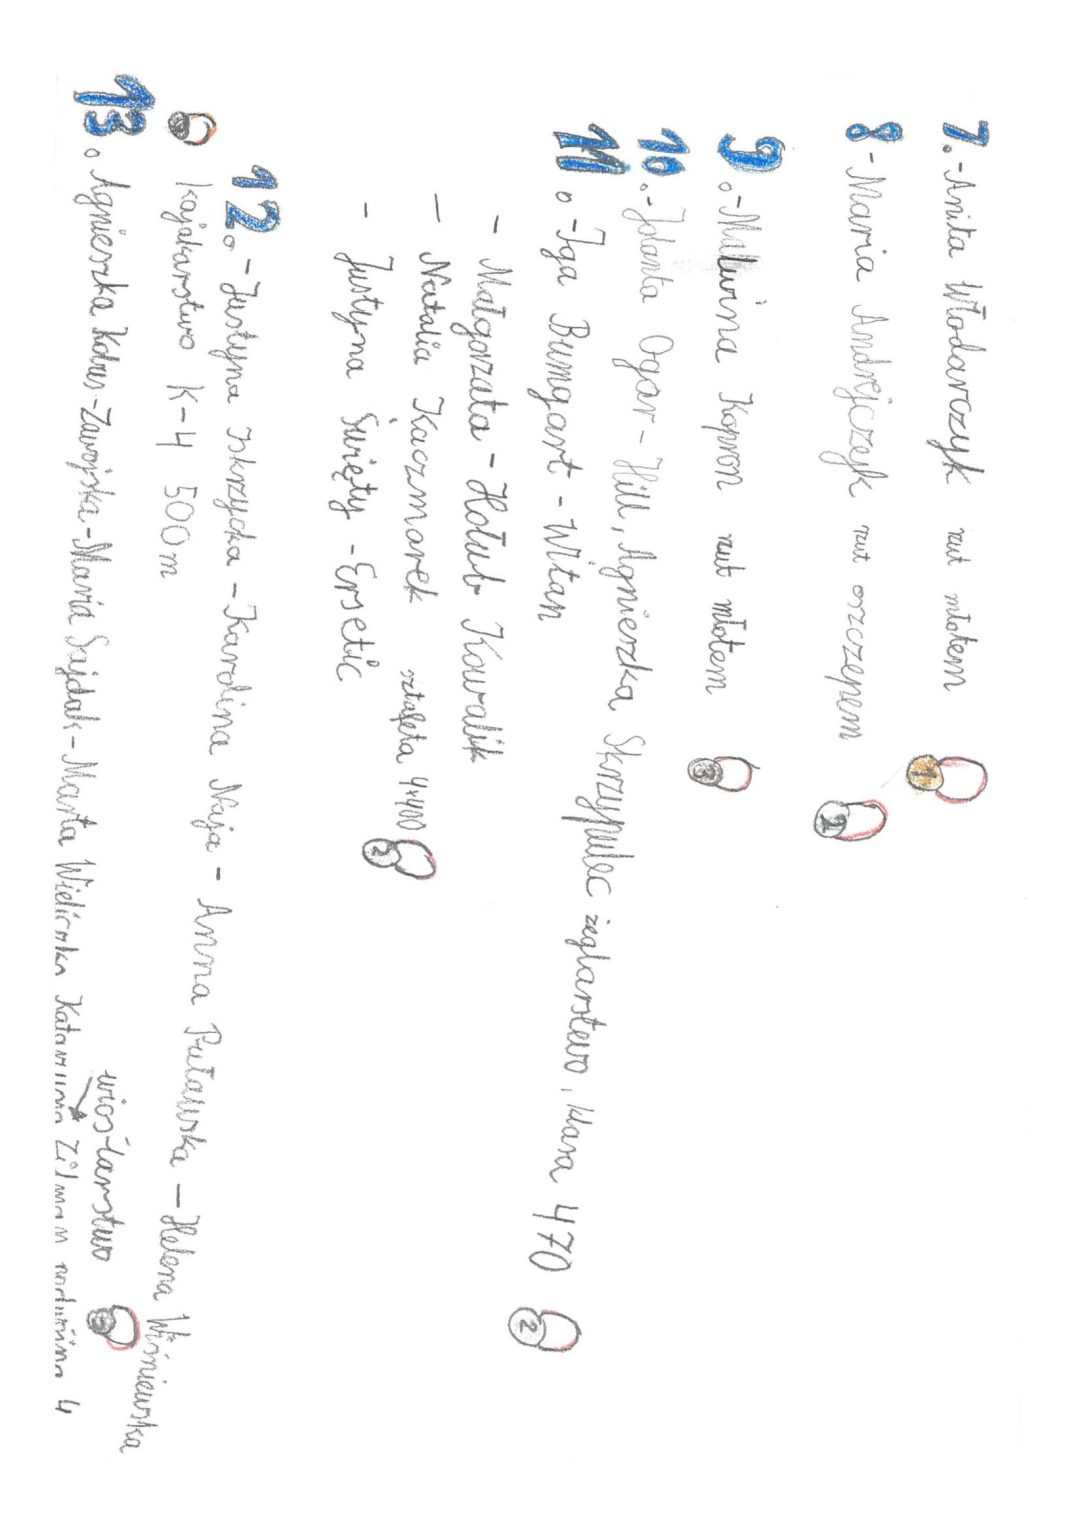 7.-Anita Włodarczyk rzut młotem 1
8-Maria Andrejczyk rzut oszczepem 2
9.-Malwina Kopron rzut młotem 3
10.-Jolanta Ogar-Hill, Agnieszka Skrzypulec żeglarstwo, klasa 470 2
11.-Iga Bumgart-Witan
- Małgorzata-Hołub Kowalik
- Natalia Kaczmarek sztafeta 4x400 2
- Justyna Święty-Ersetić
12.-Justyna Iskrzycka-Karolina Naja-Anna Puławska-Helena Wiśniewska
kajakarstwo K-4 500m
wioślarstwo
13. Agnieszka Kobus-Zawojska-Maria Sajdak-Marta Wieliczko Katarzyna Zilman 4